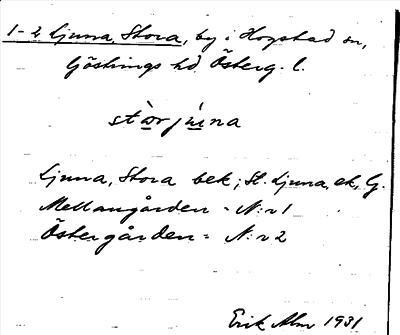 1-2 Ljuna, Stora, by i Hogstad sn,
Göstrings hd. Österg. l.
stὰr jὺna
Ljuna, Stora bek; St. Ljuna, ek, G.
Mellangården = N:r 1
Östergården = N:r 2
Erik Alm 1931